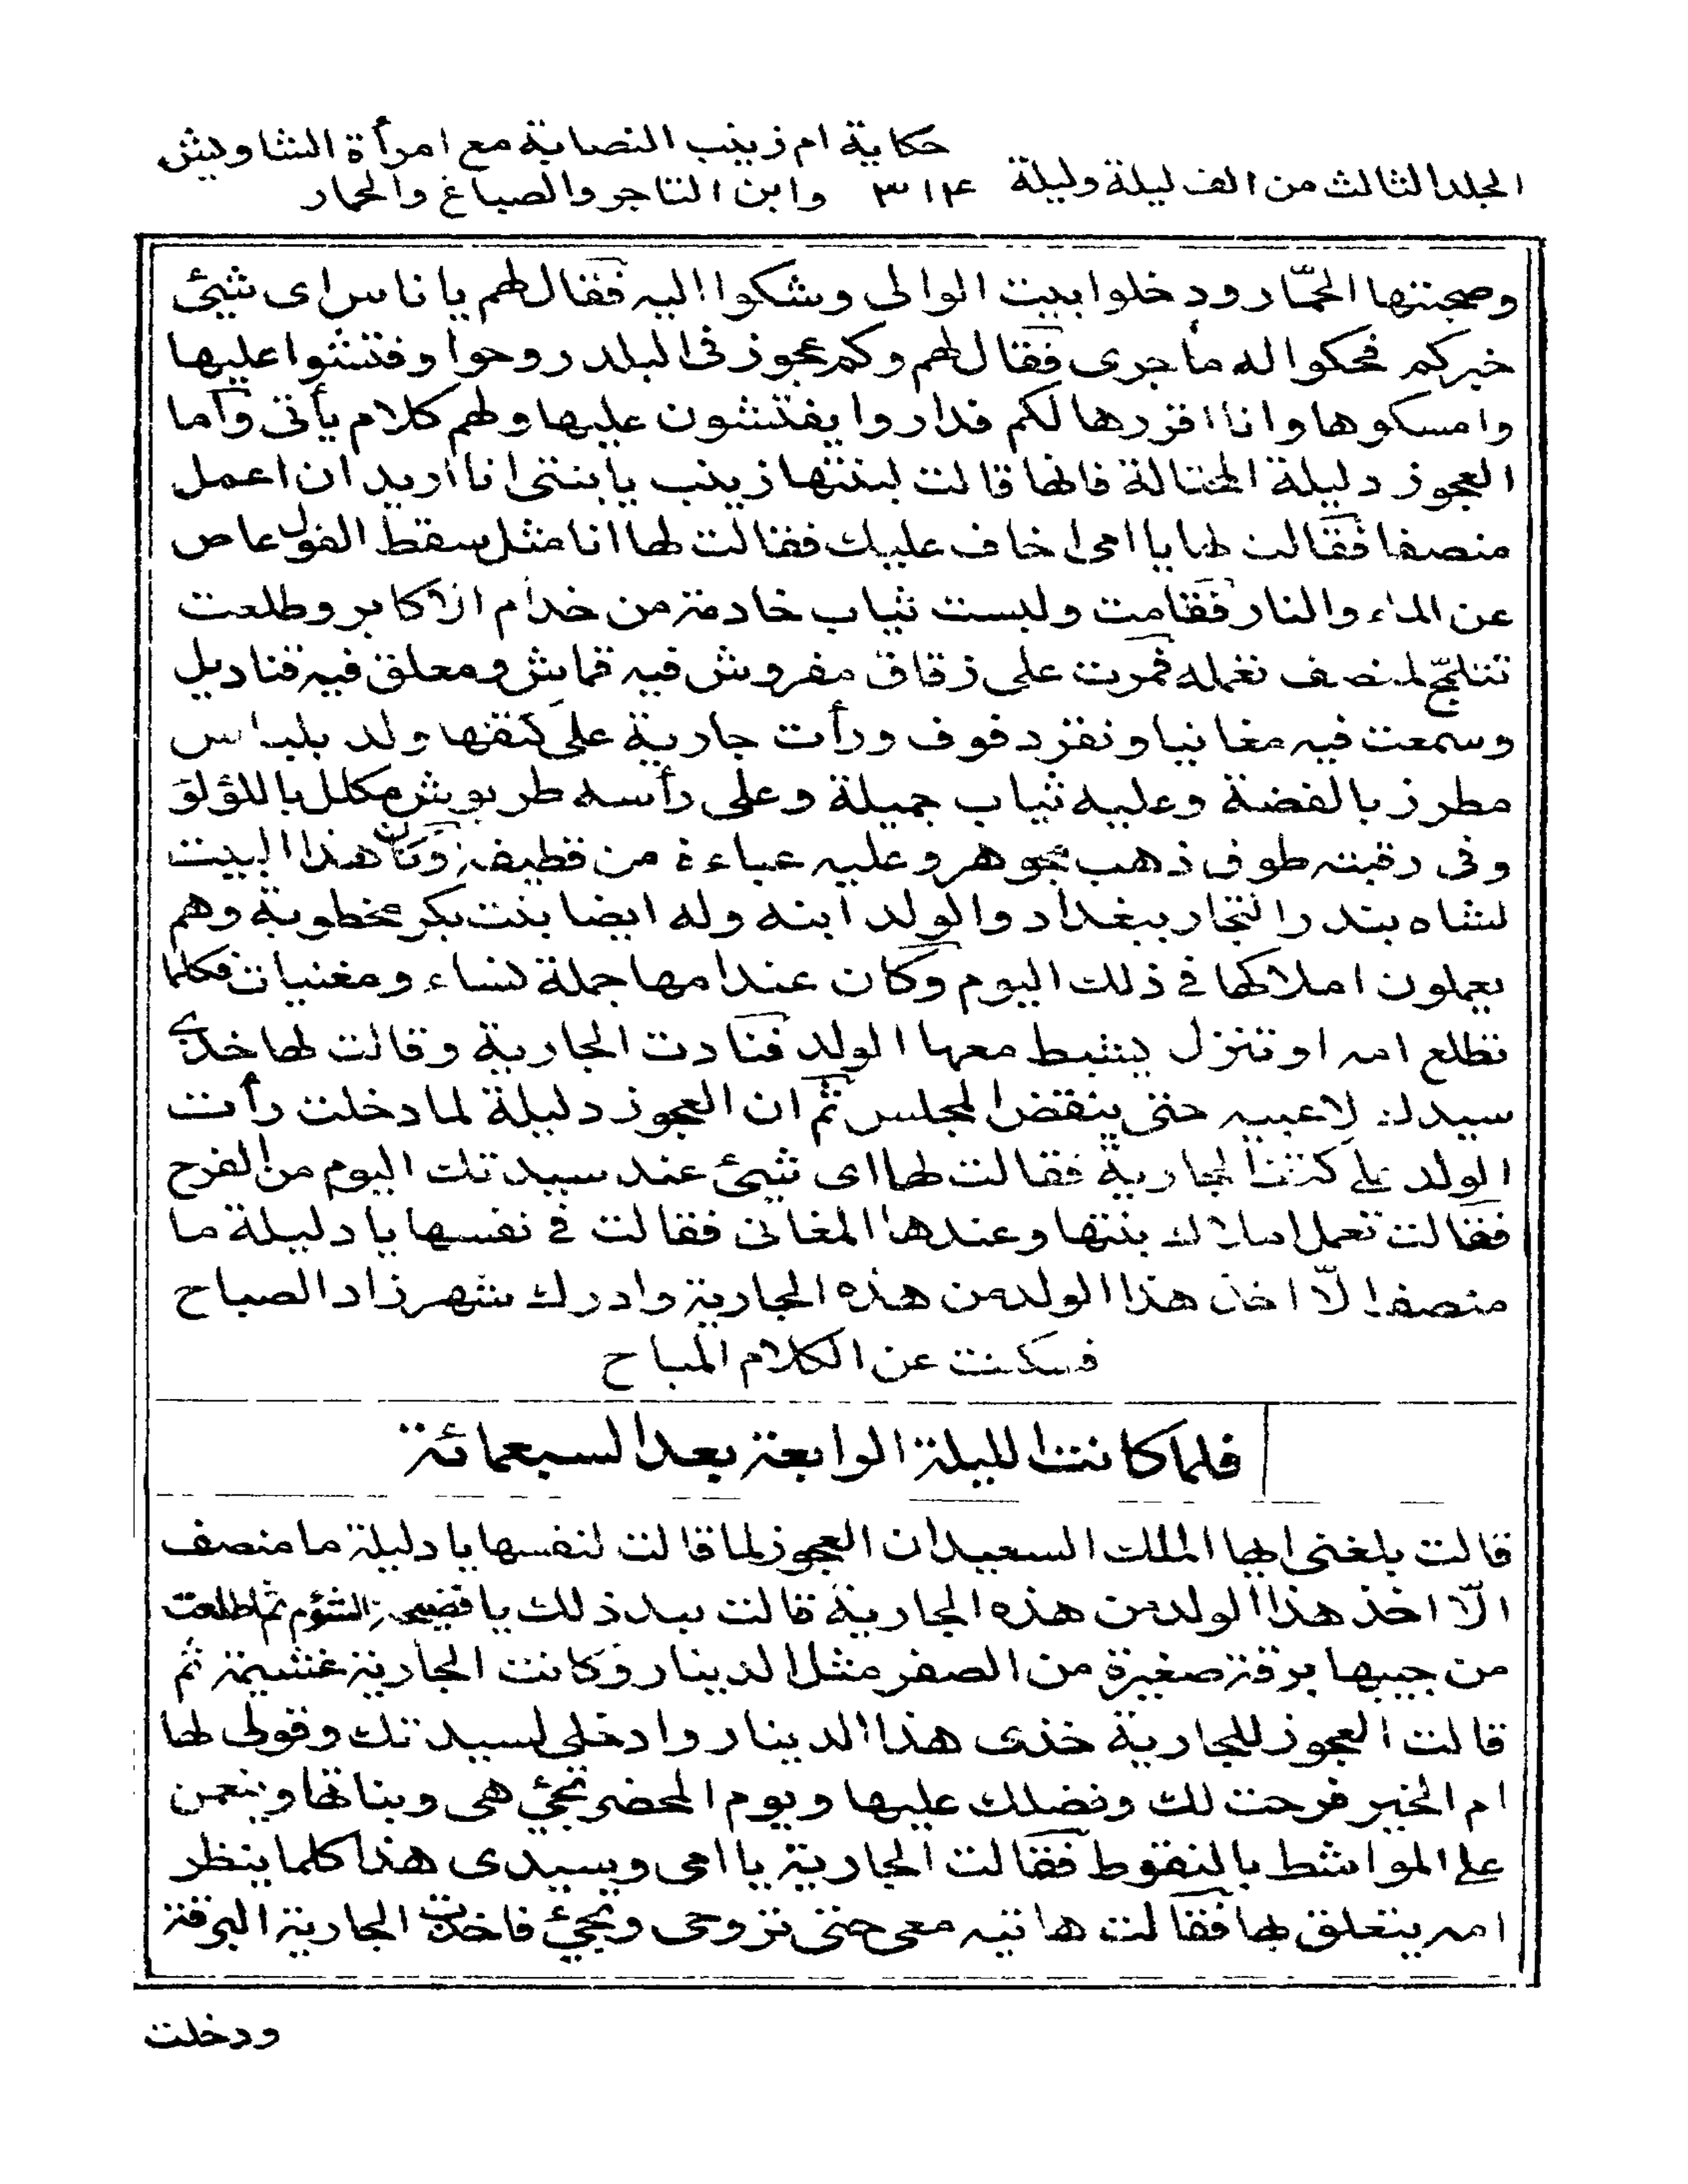 حكاية ام زينب النصابة مع امرأة الشاويش
المجلد الثالث من الف ليلة وليلة ٣١٤ وابن التاجر والصباغ والحمار
وصحبتها الحمّار ودخلوا بيت الوالى وشكوا اليه فقال لهم يا ناس اى شيئ
خبركم فحكوا له ما جرى فقال لهم وكم عجوز فى البلد روحوا وفتشوا عليها
وامسكوها وانا اقررها لكم فداروا يفتشون عليها ولهم كلام يأتى وآما
العجوز دليلة المحتالة فانها قالت لبنتها زينب يا بنتى انا اريد ان اعمل
منصفا فقالت لها يا امى اخاف عليك فقالت لها انا مثل سقط الفول عاص
عن الماء والنار فقامت ولبست ثياب خادمة من خدام الاكابر وطلعت
تتلمّح لمنصف تعمله فمرت على زقاق مفروش فيه قماش ومعلق فيه قناديل
وسمعت فيه مغانيا ونقر دفوف ورأت جارية على كتفها ولد بلباس
مطرز بالفضة وعليه ثياب جميلة وعلى رأسه طربوش مكلل باللؤلؤ
وفى رقبته طوق ذهب مجوهر وعليه عباءة من قطيفة وكان هذا البيت
لشاه بندر التجار ببغداد والولد ابنه وله ايضا بنت بكر مخطوبة وهم
يعملون املاكها فى ذلك اليوم وكان عند امها جملة نساء ومغنيات فكلما
تطلع امه او تنزل يشبط معها الولد فنادت الجارية وقالت لها خذى
سيدك لاعبيه حتى ينقض المجلس ثم ان العجوز دليلة لما دخلت رأت
الولد على كتف الجارية فقالت لها اى شيئ عند سيدتك اليوم من الفرح
فقالت تعمل املاك بنتها وعندها المغانى فقالت فى نفسها يا دليلة ما
منصف الّا اخذ هذا الولد من هذه الجارية وادرك شهرزاد الصباح
فسكتت عن الكلام المباح
فلما كانت الليلة الرابعة بعد السبعمائة
قالت بلغنى ايها الملك السعيد ان العجوز لما قالت لنفسها يا دليلة ما منصف
الّا اخذ هذا الولد من هذه الجارية قالت بعد ذلك يا فضيحة الشؤم ثم اطلعت
من جيبها برقة صغيرة من الصفر مثل الدينار وكانت الجارية غشيمة ثم
قالت العجوز للجارية خذى هذا الدينار وادخلى لسيدتك وقولى لها
ام الخير فرحت لك وفضلك عليها ويوم المحضر تجيئ هى وبناتها وينعمن
على المواشط بالنقوط فقالت الجارية يا امى وسيدى هذا كلما ينظر
امه يتعلق بها فقالت هاتيه معى حتى تروحى وتجيئ فاخذت الجارية البرقة
ودخلت